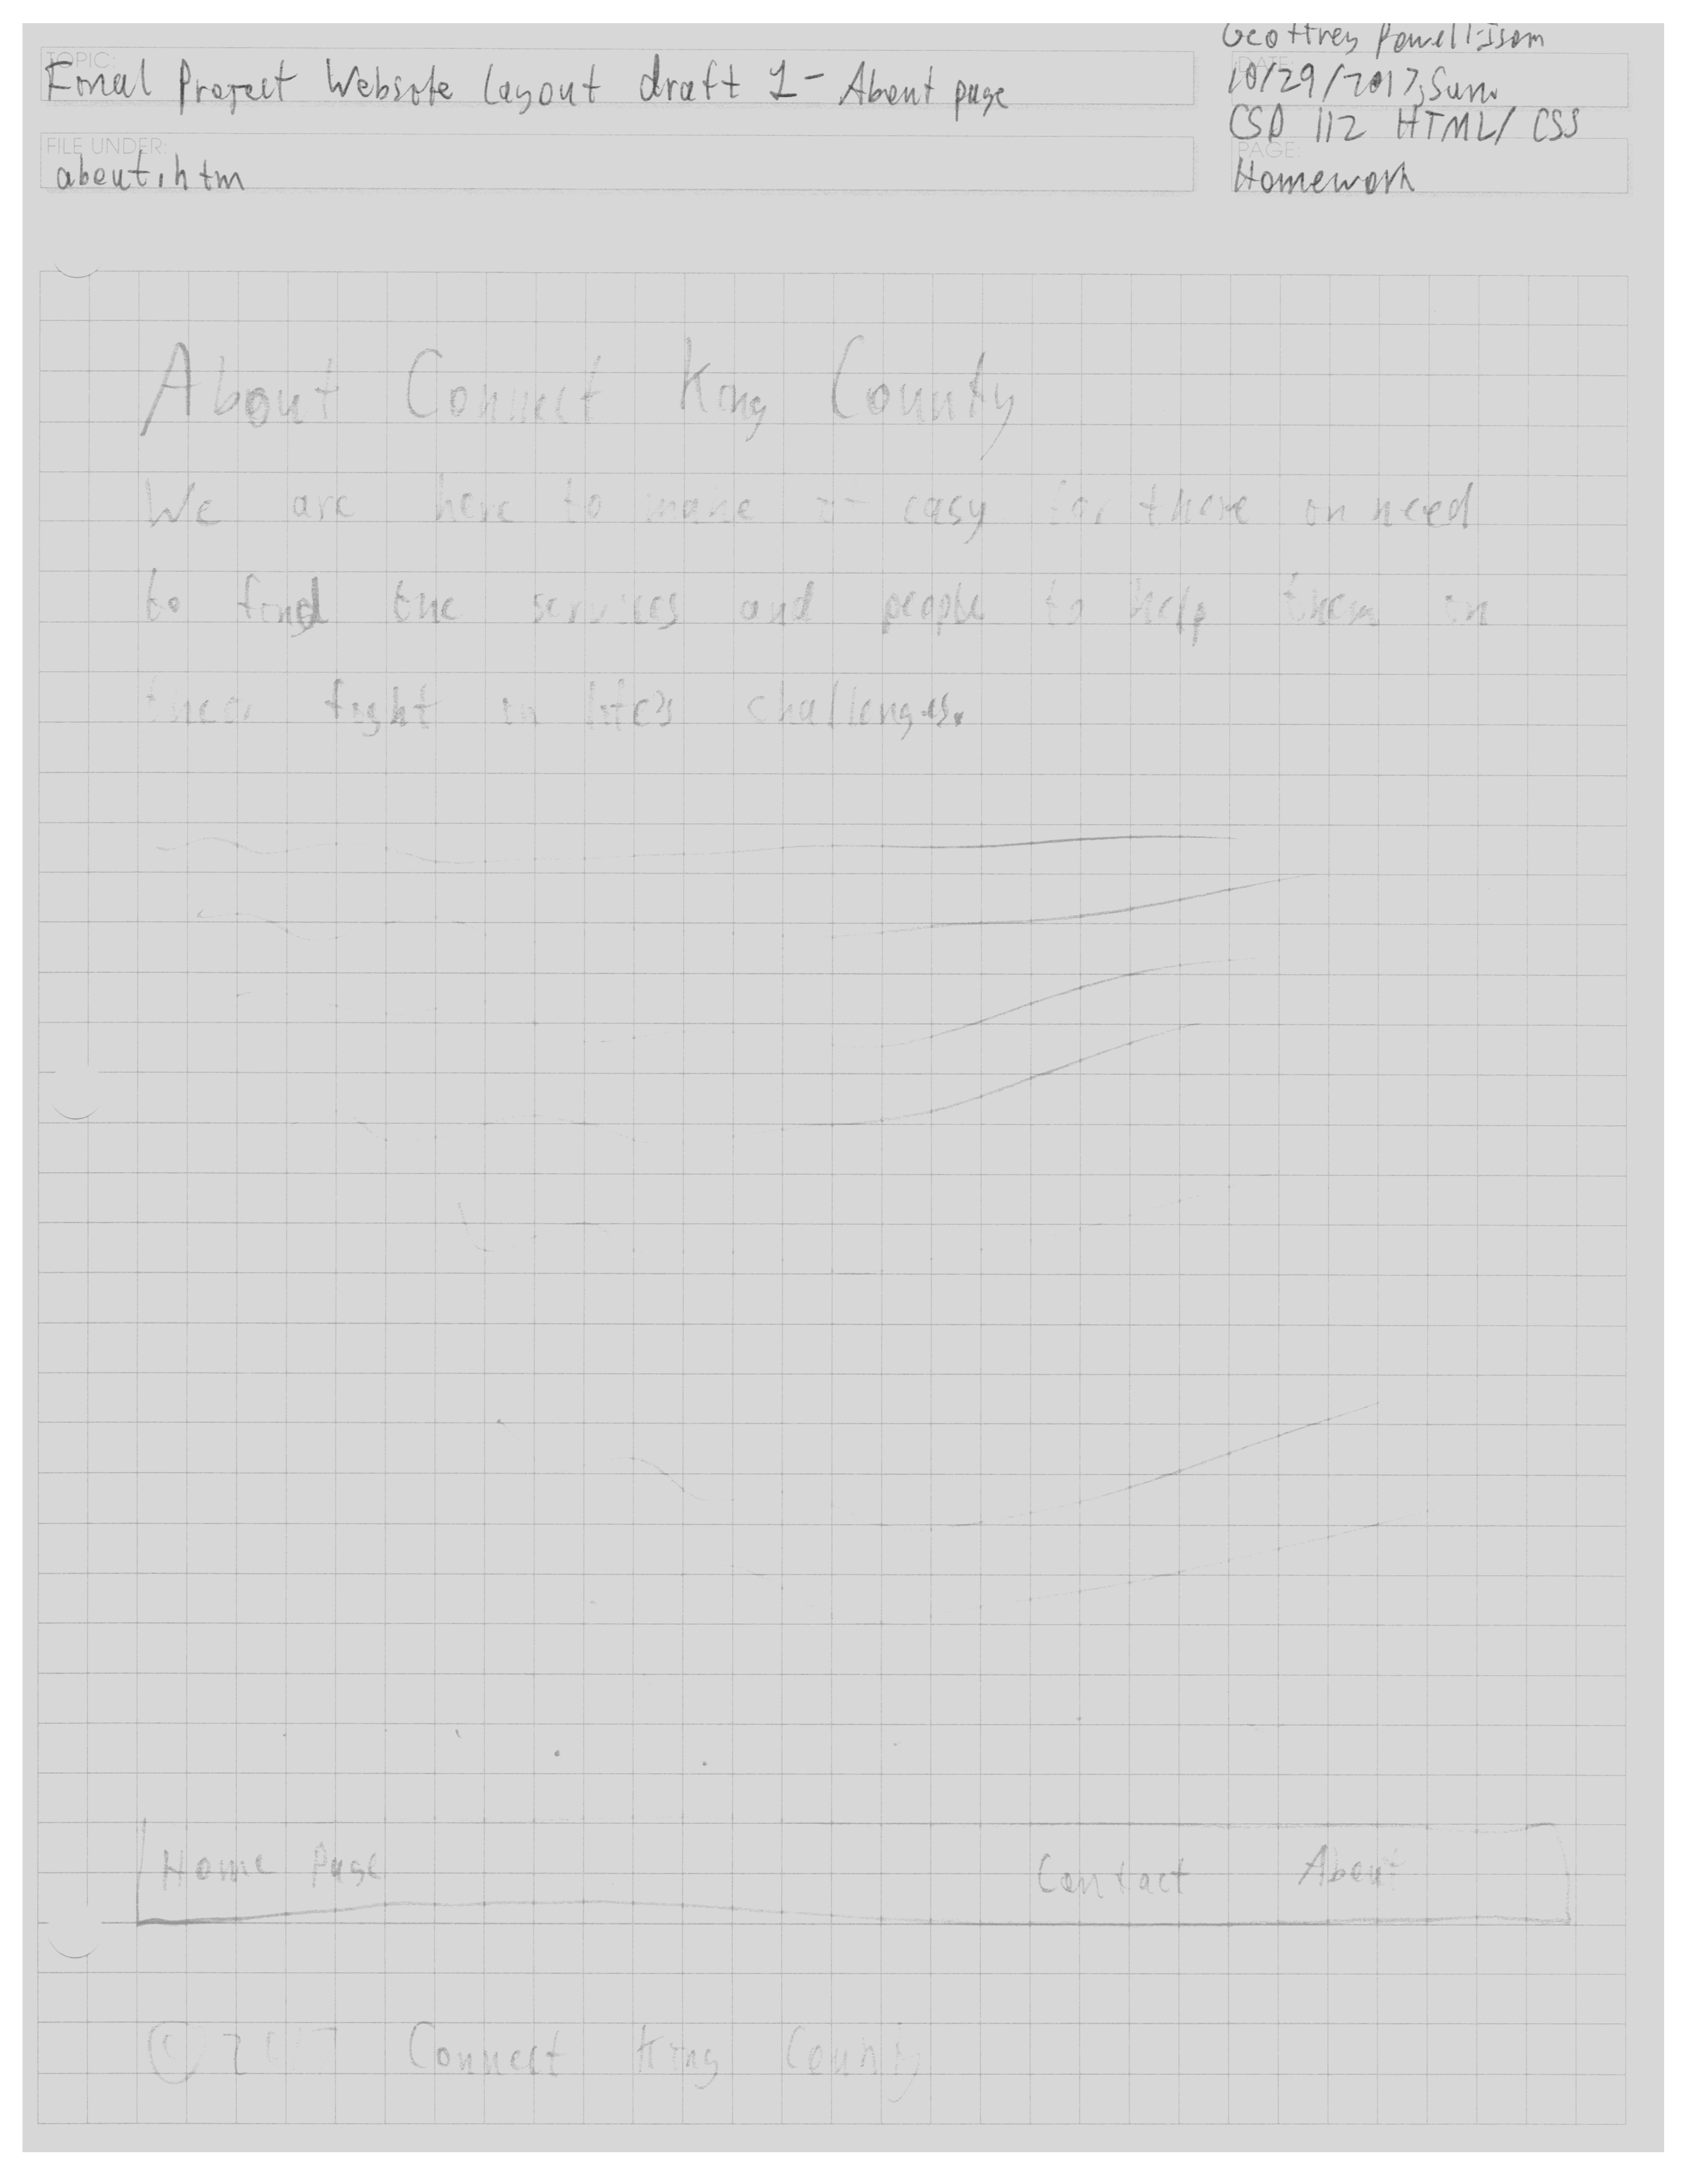 Geoffrey Powell-Isom
TOPIC:
Final Project Website Layout draft 1 - About page
DATE:
10/29/2017, Sun.
CSD 112 HTML/CSS
FILE UNDER:
about.htm
PAGE:
Homework
About Connect King County
We are here to make easy for those in need
to find the services and people to help them in
their fight in life's challenges.
Home Page Contact About
© 2017 Connect King County